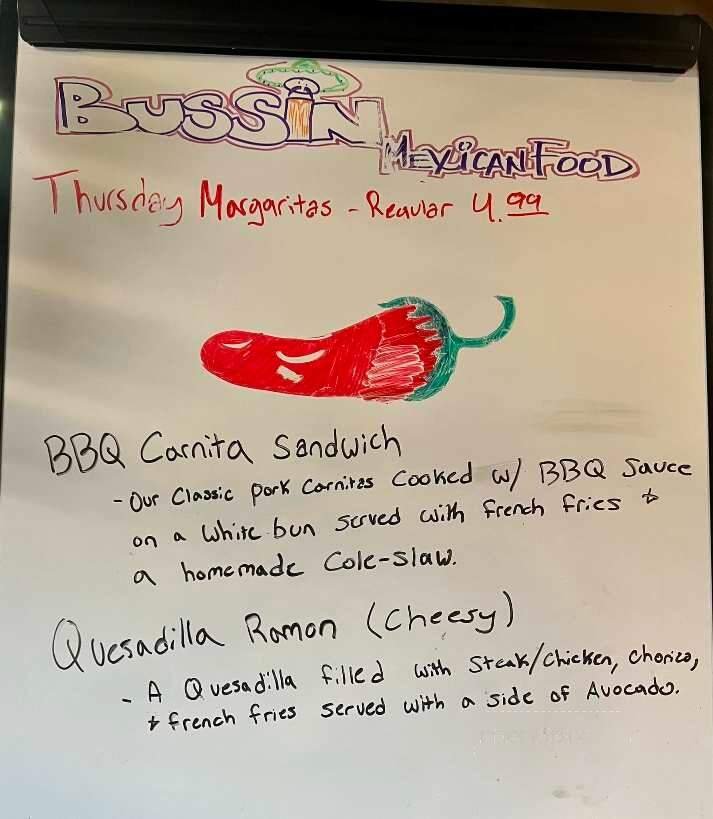 BUSSIN
MEXICAN FOOD
Thursday Margaritas - Reaular 4.99
BBQ Carnita Sandwich
- Our Classic pork Carnitas Cooked w/ BBQ Sauce
on a white bun served with french fries +
a homemade Cole-slaw.
Quesadilla Ramon (Cheesy)
- A Quesadilla filled with Steak/Chicken, Chorizo,
+ french fries served with a side of Avocado.